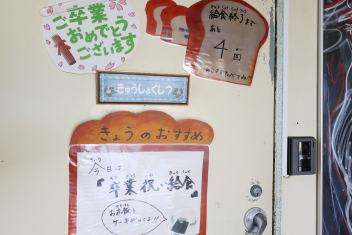 ご卒業
おめでとう
ございます
給食終了まで
あと
4回
きゅうしょくしつ
きょうのおすすめ
今日は
『卒業祝い給食』
お赤飯と
ケーキがつくよ!!